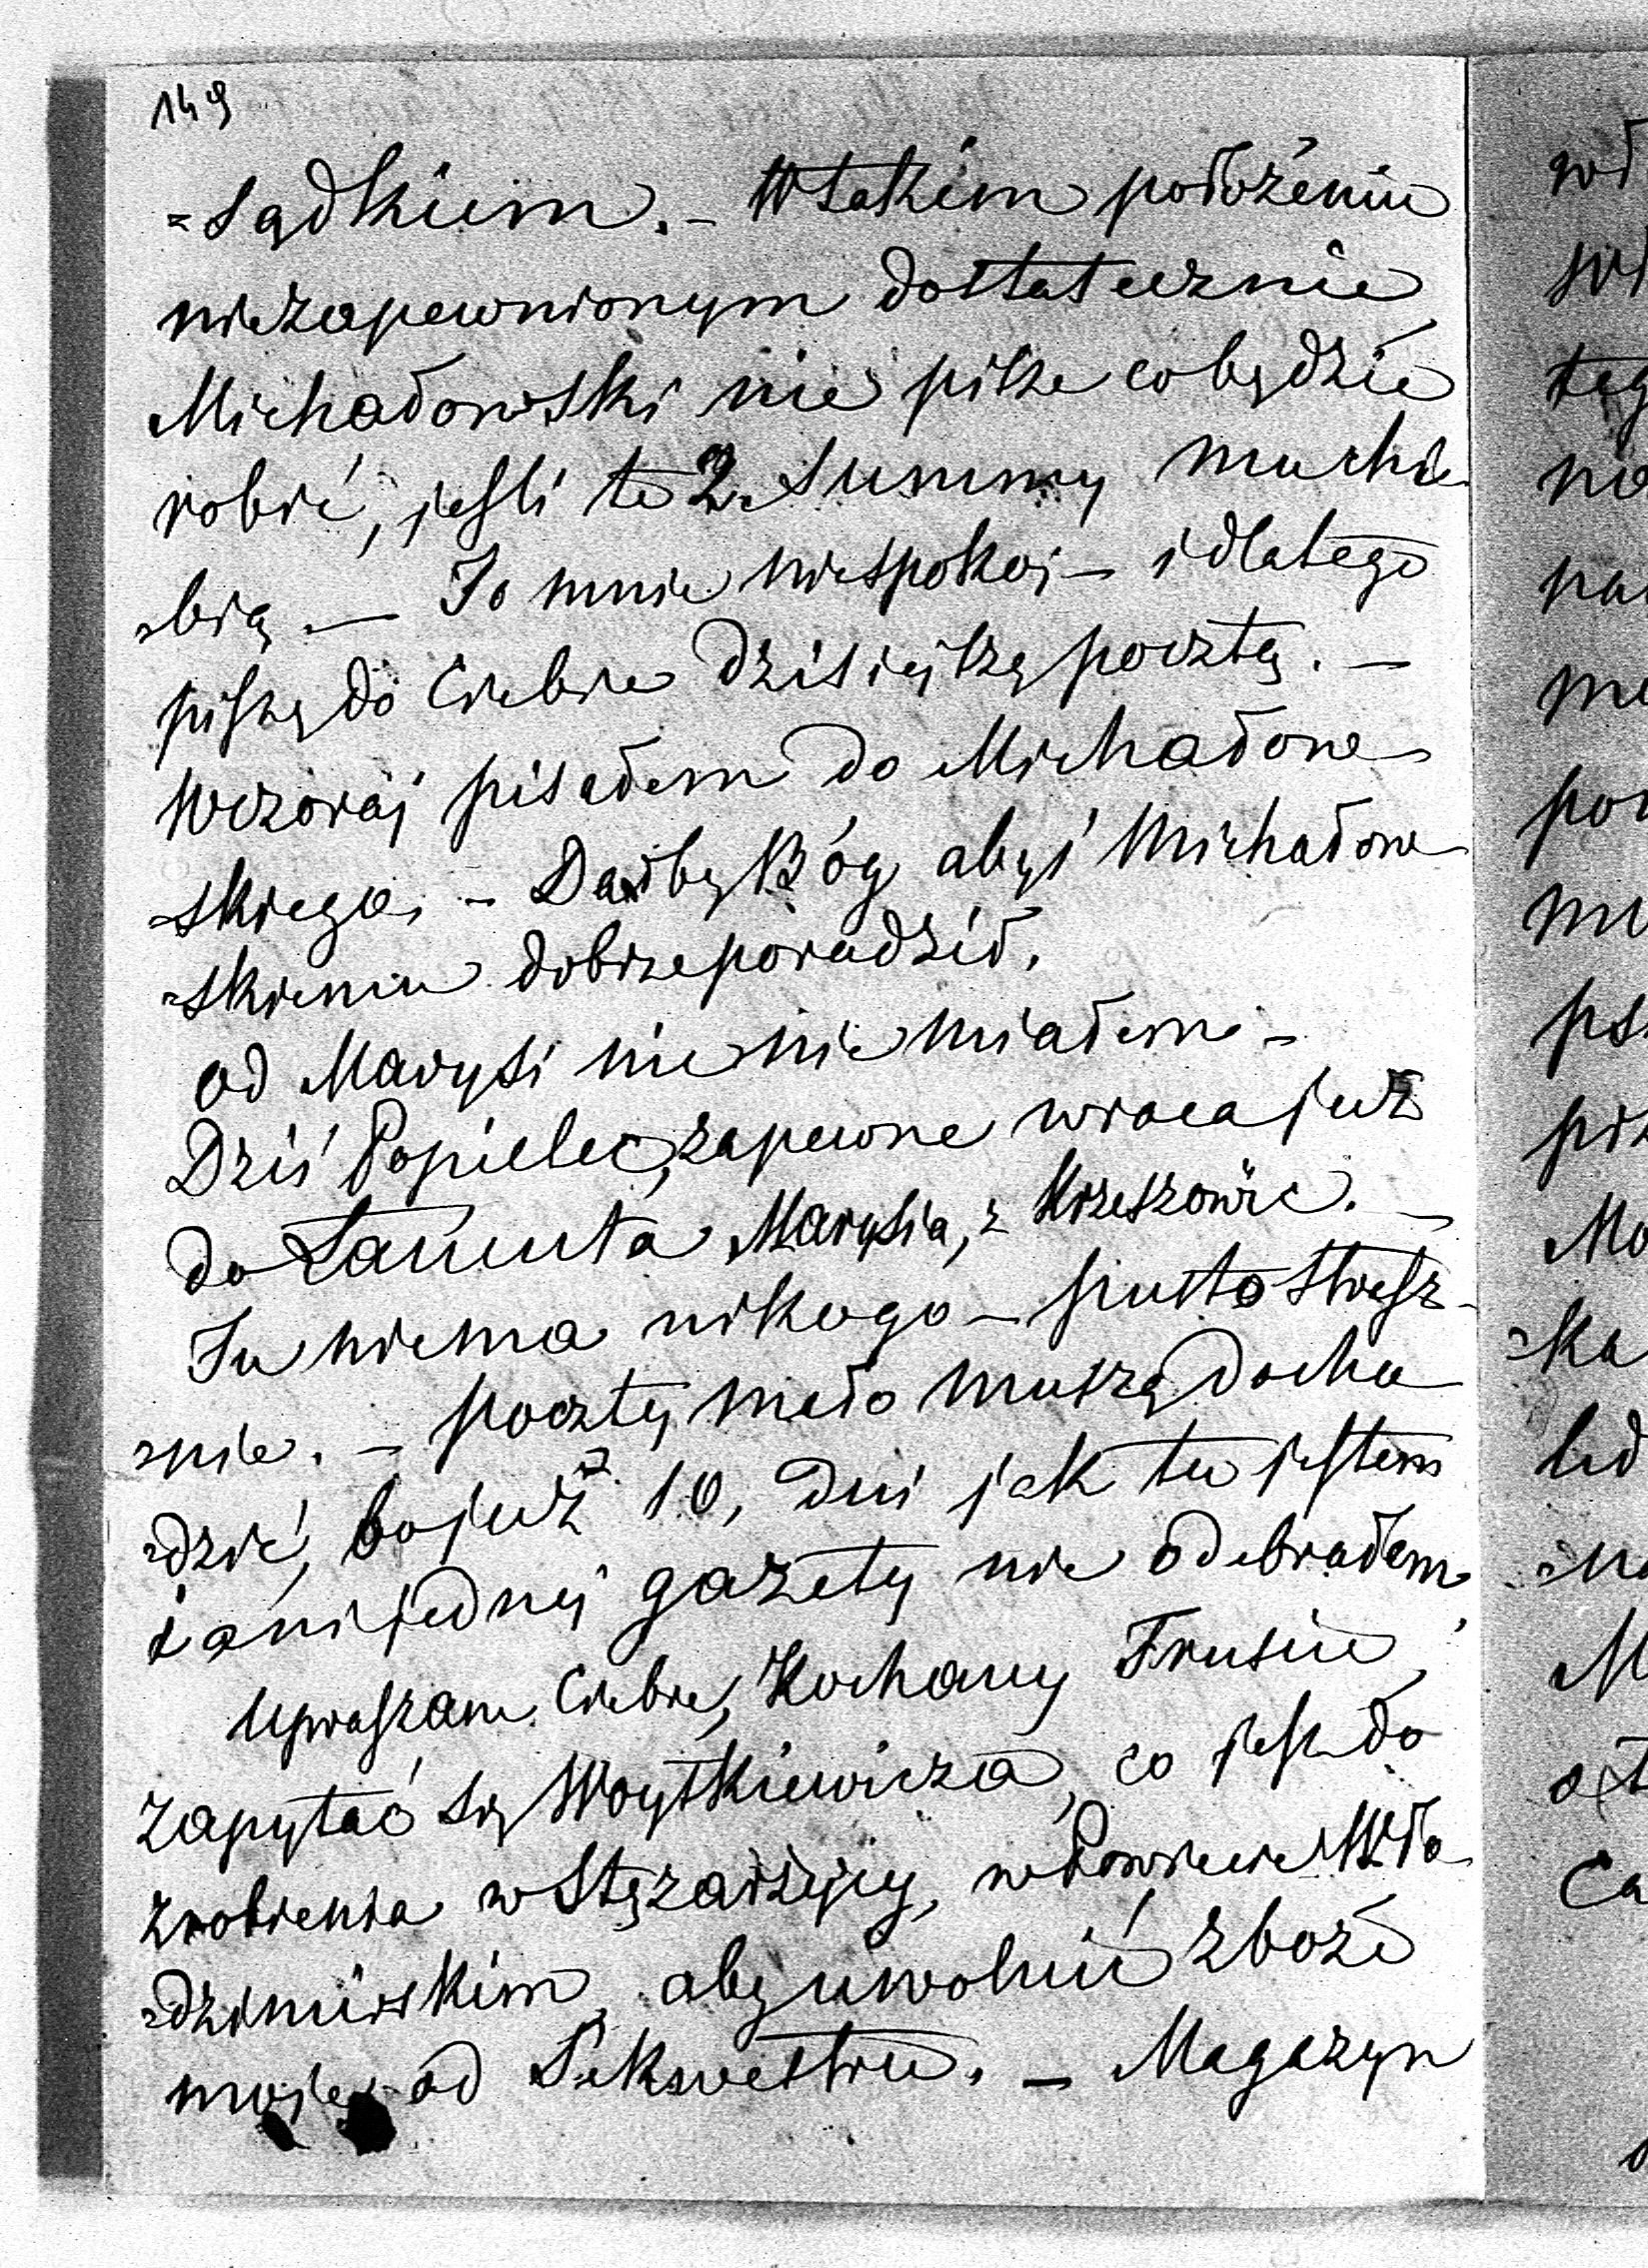 149
=sądkiem. – W takiém położeniu
niezapewnionym dostatecznie
Michałowski nie pisze co będzie
robić, jeśli te 2. Summy muchie
=bią – To mnie niespokoi – i dlatego
piszę do Ciebie dzisiejszą pocztą. –
Wczoraj pisałem do Michałow
=skiego, – Dałby Bóg abyś Michałow
=skiemu dobrze poradził.
od Marysi nic nie miałem –
Dziś Popielec, zapewne wraca już
do Łańcuta Marysia, z Krzeszowic. –
Tu niema nikogo – pusto strasz-
=nie. – poczty mało muszą docho
=dzić, bo już 10, dni jak tu jestem
i ani jednej gazety nie odebrałem,
Upraszam Ciebie, Kochany Frusiu,
zapytać się Woytkiewicza, co jest do
zrobienia w Stężarzycy, w Powiecie Wło
=dzimirskim, aby uwolnić zboże
moje od Sekwestru. – Magazyn